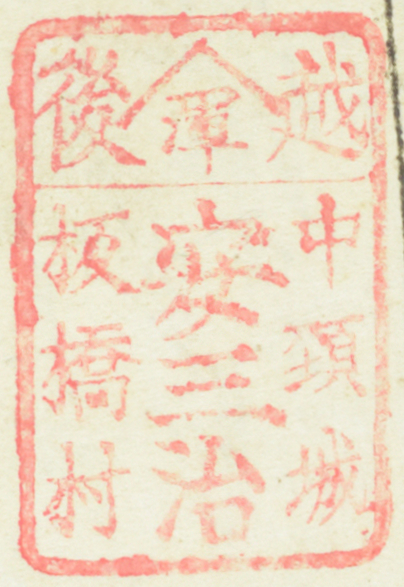 越渾後
中頚城
安三治
板橋村